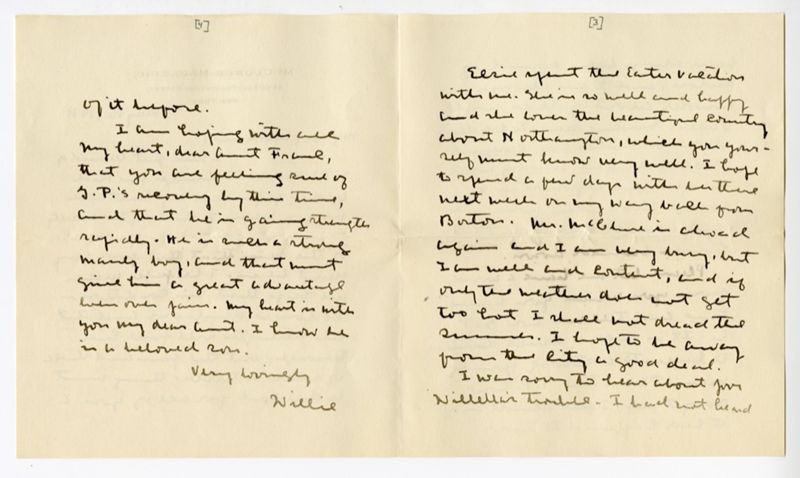 [3]
Elsie spent the Easter vacation
with me. She is so well and happy
and she loves the beautiful country
about Northampton, which you your-
self must know very well. I hope
to spend a few days with her there
next week on my way back from
Boston. Mr. McClure is abroad
again and I am very busy, but
I am well and content, and if
only the weather does not get
too hot I shall not dread the
summer. I hope to be away
from the City a good deal.
I was sorry to hear about poor
Willella's trouble. I had not heard
[4]
of it before.
I am hoping with all
my heart, dear Aunt Franc,
that you are feeling sure of
G.P.'s recovery by this time,
and that he is gaining strength
rapidly. He is such a strong
manly boy, and that must
give him a great advantage
even over pain. My heart is with
you my dear Aunt. I know he
is a beloved son.
Very lovingly
Willie